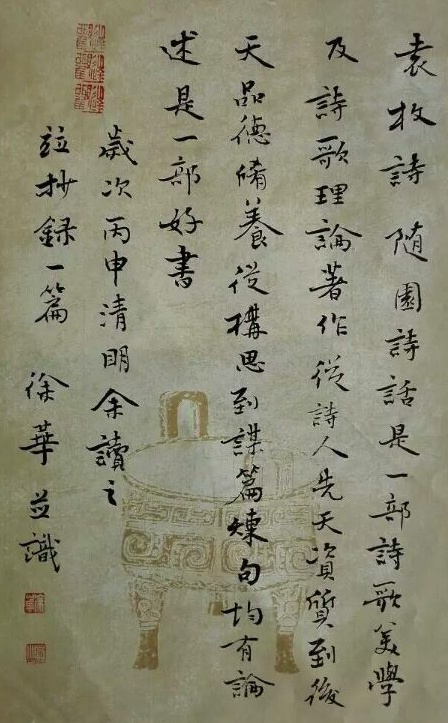 袁枚詩随園詩話是一部詩歌美學
及詩歌理論著作從詩人先天資質到後
天品德脩養從構思到謀篇煉句均有論
述是一部好書
歲次丙申清明余讀之
竝抄録一篇 徐華並識